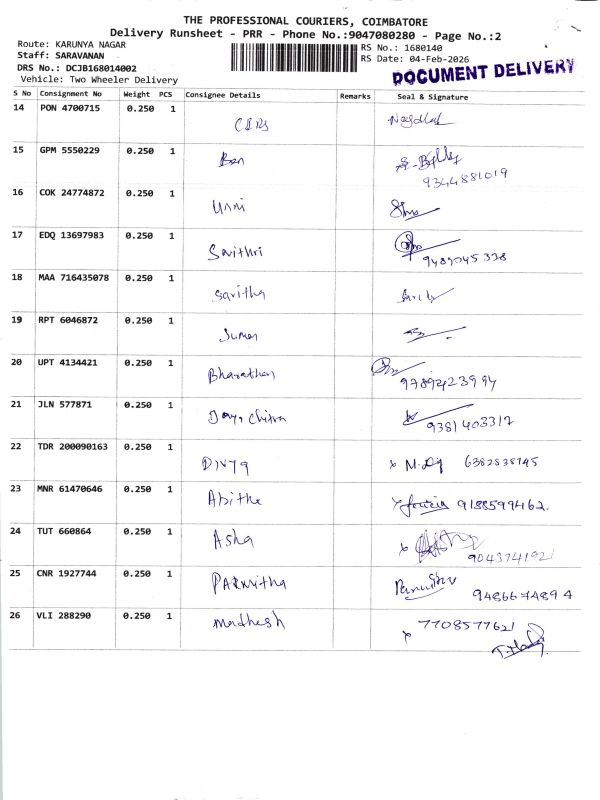 THE PROFESSIONAL COURIERS, COIMBATORE
Delivery Runsheet - PRR - Phone No.:9047080280 - Page No.:2
Route: KARUNYA NAGAR
Staff: SARAVANAN
DRS No.: DCJB168014002
Vehicle: Two Wheeler Delivery
RS No.: 1680140
RS Date: 04-Feb-2026
DOCUMENT DELIVERY
S No Consignment No Weight PCS Consignee Details Remarks Seal & Signature
14 PON 4700715 0.250 1
15 GPM 5550229 0.250 1 Ben
9344881019
16 COK 24774872 0.250 1 Unni
17 EDQ 13697983 0.250 1 Savithri
9489045338
18 MAA 716435078 0.250 1 Savitha
19 RPT 6046872 0.250 1 Suman
20 UPT 4134421 0.250 1 Bharathan
9789423994
21 JLN 577871 0.250 1 Chitra
9381403317
22 TDR 200090163 0.250 1 Divya
6382838745
23 MNR 61470646 0.250 1 Abitha
9188599462.
24 TUT 660864 0.250 1 Asha
9043741921
25 CNR 1927744 0.250 1
9486674894
26 VLI 288290 0.250 1 Madhesh
7708577621